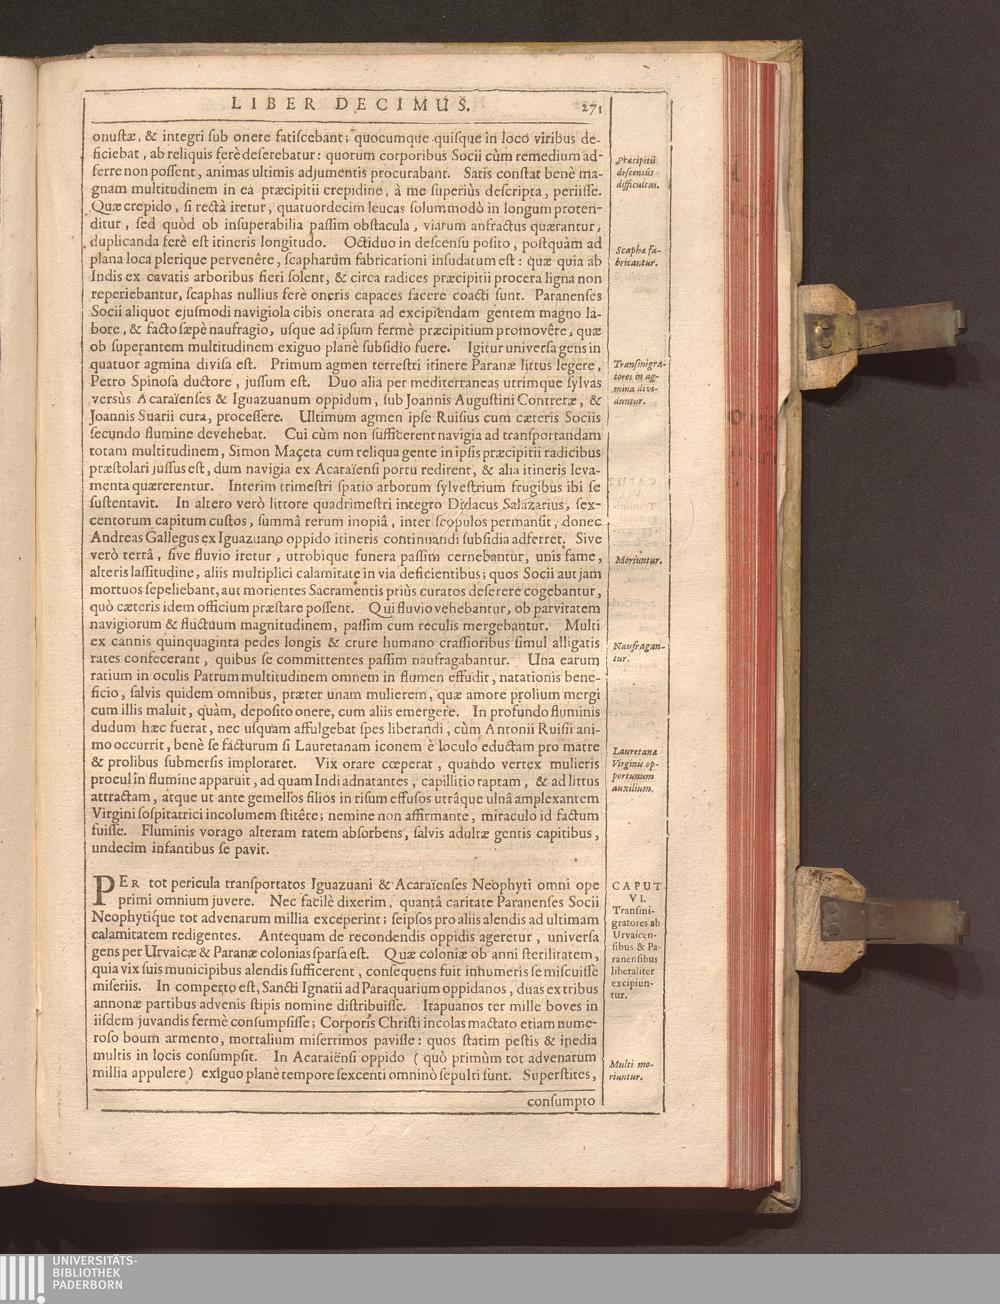 LIBER DECIMUS. 271
onustæ, & integri sub onere fatiscebant; quocumque quisque in loco viribus de-
ficiebat, ab reliquis ferè deserebatur: quorum corporibus Socii cùm remedium ad-
ferre non possent, animas ultimis adjumentis procurabant. Satis constat benè ma-
gnam multitudinem in ea præcipitii crepidine, à me superiùs descripta, periisse.
Quæ crepido, si rectà iretur, quatuordecim leucas solummodò in longum proten-
ditur, sed quòd ob insuperabilia passim obstacula, viarum anfractus quærantur,
duplicanda ferè est itineris longitudo. Octiduo in descensu posito, postquàm ad
plana loca plerique pervenêre, scapharum fabricationi insudatum est: quæ quia ab
Indis ex cavatis arboribus fieri solent, & circa radices præcipitii procera ligna non
reperiebantur, scaphas nullius ferè oneris capaces facere coacti sunt. Paranenses
Socii aliquot ejusmodi navigiola cibis onerata ad excipiendam gentem magno la-
bore, & facto sæpè naufragio, usque ad ipsum fermè præcipitium promovêre, quæ
ob superantem multitudinem exiguo planè subsidio fuere. Igitur universa gens in
quatuor agmina divisa est. Primum agmen terrestri itinere Paranæ littus legere,
Petro Spinosa ductore, jussum est. Duo alia per mediterraneas utrimque sylvas
versùs Acaraïenses & Iguazuanum oppidum, sub Joannis Augustini Contreræ, &
Joannis Suarii cura, processere. Ultimum agmen ipse Ruisius cum cæteris Sociis
secundo flumine devehebat. Cui cùm non sufficerent navigia ad transportandam
totam multitudinem, Simon Maçeta cum reliqua gente in ipsis præcipitii radicibus
præstolari jussus est, dum navigia ex Acaraïensi portu redirent, & alia itineris leva-
menta quærerentur. Interim trimestri spatio arborum sylvestrium frugibus ibi se
sustentavit. In altero verò littore quadrimestri integro Didacus Salazarius, sex-
centorum capitum custos, summâ rerum inopiâ, inter scopulos permansit, donec
Andreas Gallegus ex Iguazuano oppido itineris continuandi subsidia adferret. Sive
verò terrâ, sive fluvio iretur, utrobique funera passim cernebantur, unis fame,
alteris lassitudine, aliis multiplici calamitate in via deficientibus; quos Socii aut jam
mortuos sepeliebant, aut morientes Sacramentis priùs curatos deserere cogebantur,
quò cæteris idem officium præstare possent. Qui fluvio vehebantur, ob parvitatem
navigiorum & fluctuum magnitudinem, passim cum reculis mergebantur. Multi
ex cannis quinquaginta pedes longis & crure humano crassioribus simul alligatis
rates confecerant, quibus se committentes passim naufragabantur. Una earum
ratium in oculis Patrum multitudinem omnem in flumen effudit, natationis bene-
ficio, salvis quidem omnibus, præter unam mulierem, quæ amore prolium mergi
cum illis maluit, quàm, deposito onere, cum aliis emergere. In profundo fluminis
dudum hæc fuerat, nec usquam affulgebat spes liberandi, cùm Antonii Ruisii ani-
mo occurrit, benè se facturum si Lauretanam iconem è loculo eductam pro matre
& prolibus submersis imploraret. Vix orare cœperat, quando vertex mulieris
procul in flumine apparuit, ad quam Indi adnatantes, capillitio raptam, & ad littus
attractam, atque ut ante gemellos filios in risum effusos utrâque ulnâ amplexantem
Virgini sospitatrici incolumem stitêre; nemine non affirmante, miraculo id factum
fuisse. Fluminis vorago alteram ratem absorbens, salvis adultæ gentis capitibus,
undecim infantibus se pavit.
PER tot pericula transportatos Iguazuani & Acaraïenses Neophyti omni ope
primi omnium juvere. Nec facilè dixerim, quantâ caritate Paranenses Socii
Neophytique tot advenarum millia exceperint; seipsos pro aliis alendis ad ultimam
calamitatem redigentes. Antequam de recondendis oppidis ageretur, universa
gens per Urvaicæ & Paranæ colonias sparsa est. Quæ coloniæ ob anni sterilitatem,
quia vix suis municipibus alendis sufficerent, consequens fuit inhumeris se miscuisse
miseriis. In comperto est, Sancti Ignatii ad Paraquarium oppidanos, duas ex tribus
annonæ partibus advenis stipis nomine distribuisse. Itapuanos ter mille boves in
iisdem juvandis fermè consumpsisse; Corporis Christi incolas mactato etiam nume-
roso boum armento, mortalium miserrimos pavisse: quos statim pestis & inedia
multis in locis consumpsit. In Acaraïensi oppido (quò primùm tot advenarum
millia appulere) exiguo planè tempore sexcenti omninò sepulti sunt. Superstites,
consumpto
Præcipitii
descensûs
difficultas.
Scaphæ fa-
bricantur.
Transmigra-
tores in ag-
mina divi-
duntur.
Moriuntur.
Naufragan-
tur.
Lauretanæ
Virginis op-
portunum
auxilium.
CAPUT
VI.
Transmi-
gratores ab
Urvaicen-
sibus & Pa-
ranensibus
liberaliter
excipiun-
tur.
Multi mo-
riuntur.
UNIVERSITÄTS-
BIBLIOTHEK
PADERBORN